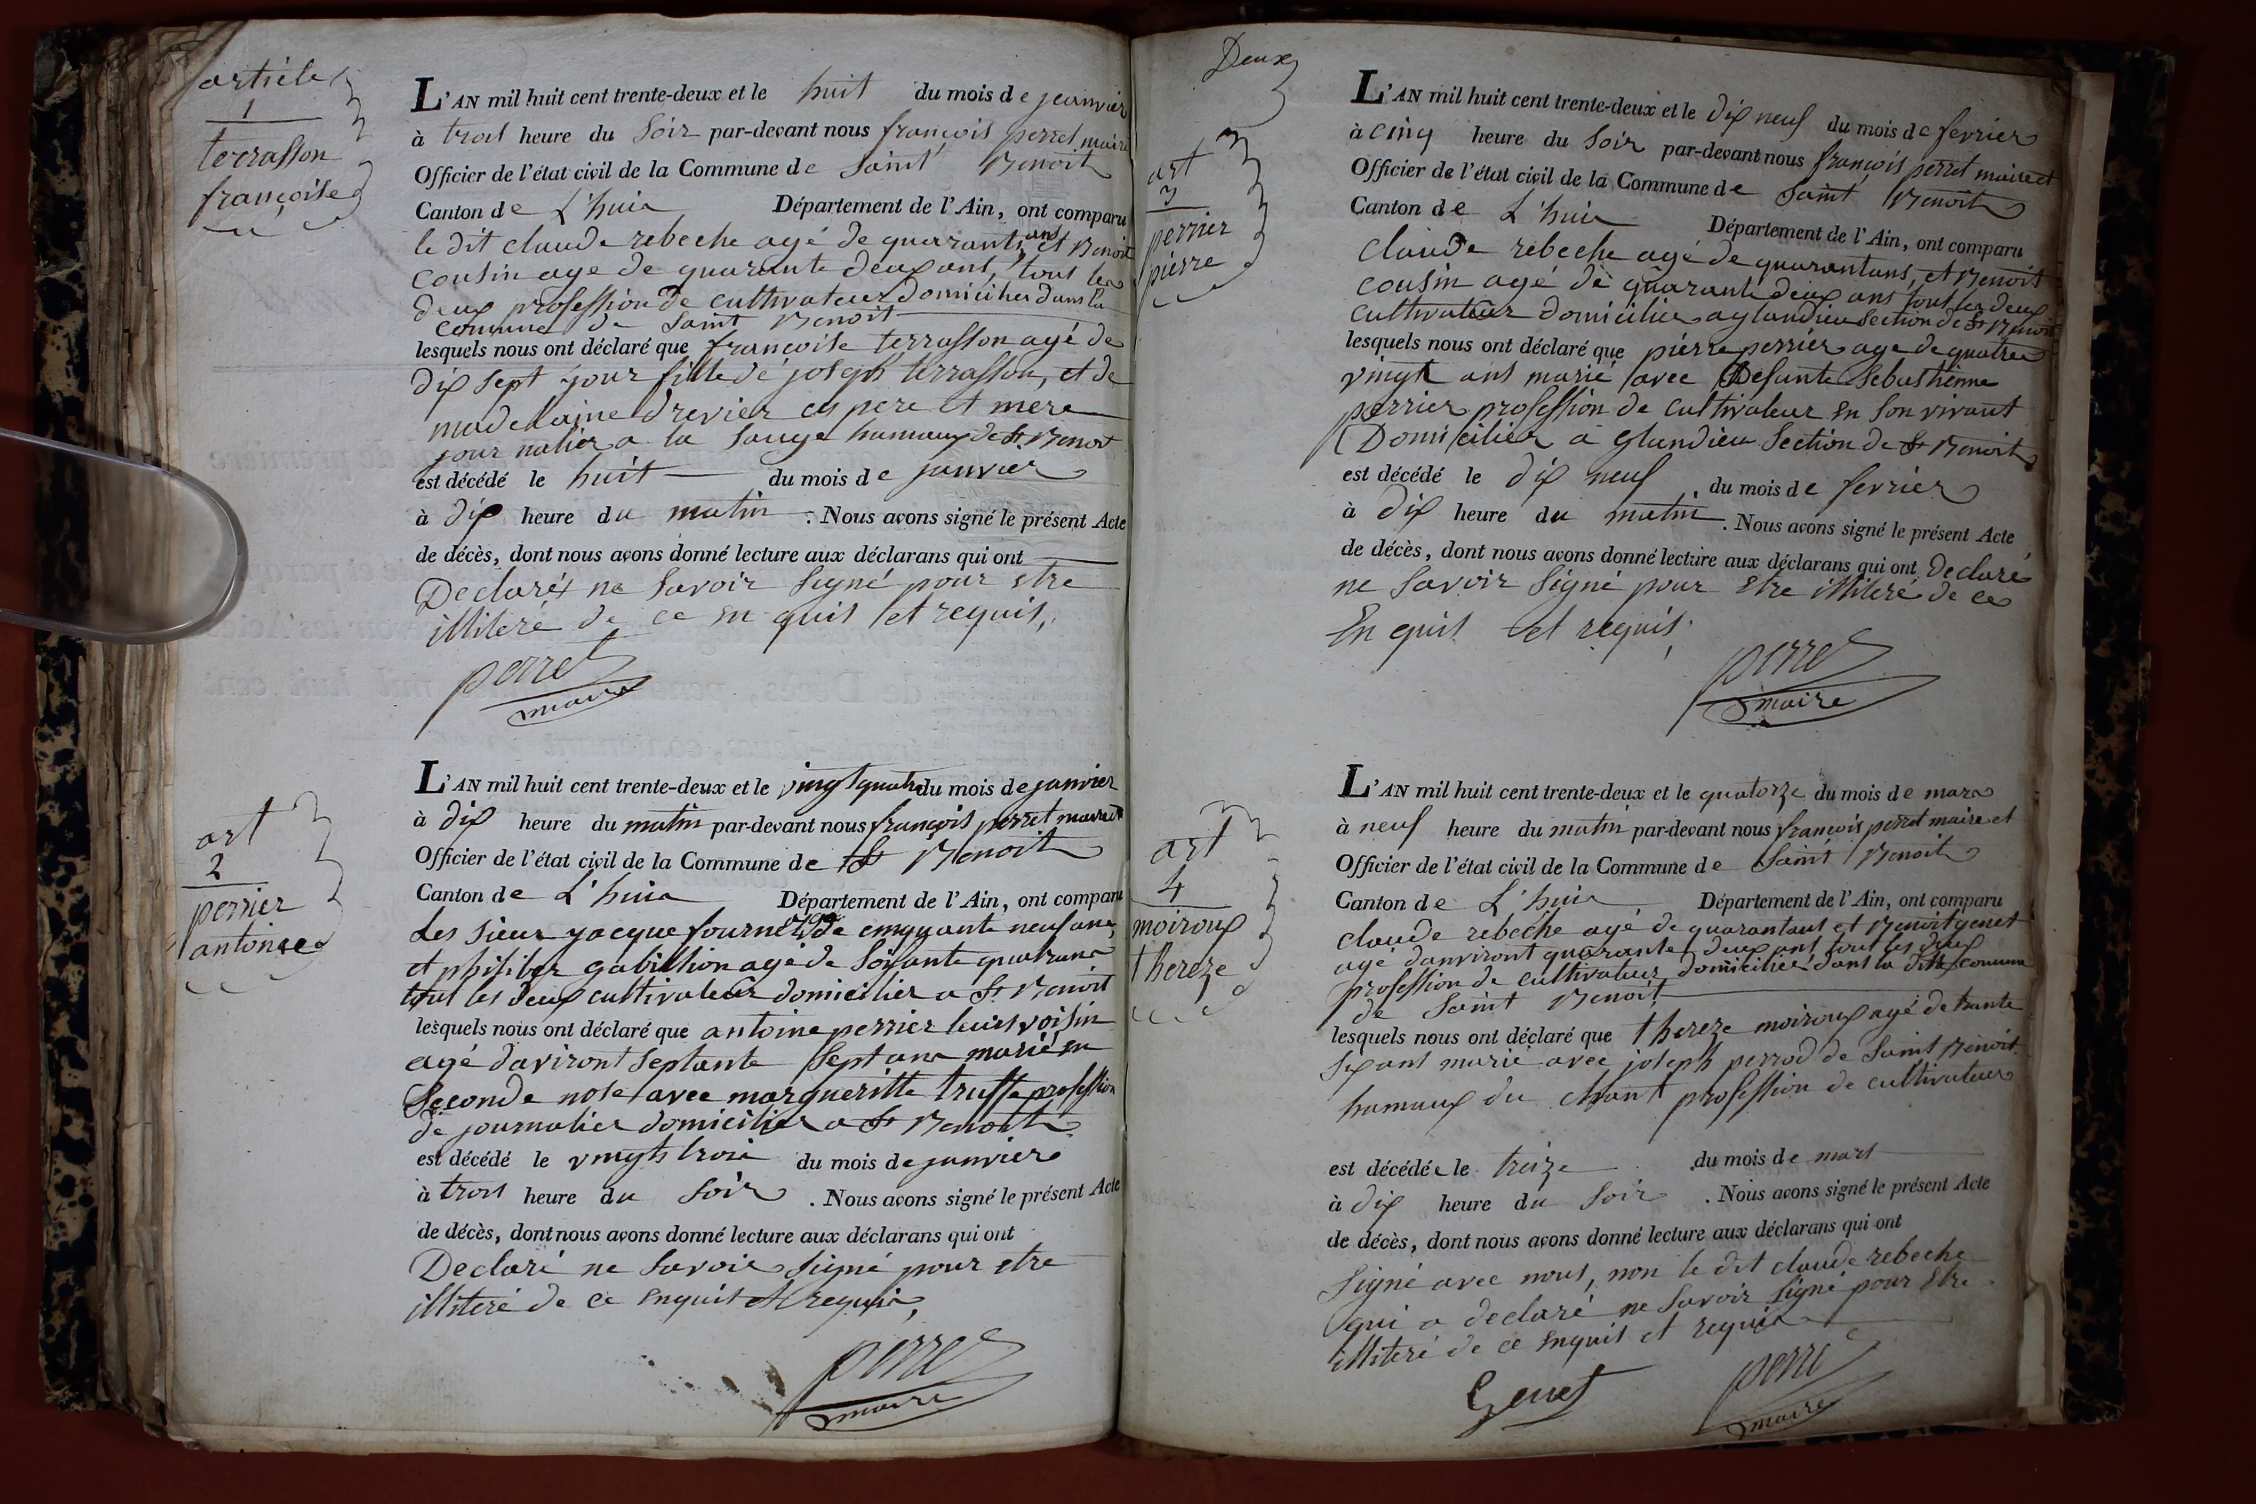 article
1
terrasson
françoise
L'AN mil huit cent trente-deux et le huit du mois de janvier
à trois heure du soir par-devant nous françois perret maire
Officier de l'état civil de la Commune de saint Benoit
Canton de L'huis Département de l'Ain, ont comparu
le dit claude rebeche agé de quarante ans et Benoit
cousin age de quarante deux ans, tous les
deux profession de cultivateur domicilier dans la
commune de saint Benoit
lesquels nous ont déclaré que françoise terrasson agé de
dix sept jour fille de joseph terrasson, et de
madelaine drevier ces pere et mere
journalier a la sauge hameaux de St Benoit
est décédé le huit du mois de janvier
à dix heure du matin. Nous avons signé le présent Acte
de décès, dont nous avons donné lecture aux déclarans qui ont
Declaré ne savoir signé pour etre
illiteré de ce en quis et requis,
perret
maire
art
2
perrier
antoine
L'AN mil huit cent trente-deux et le vingt quatre du mois de janvier
à dix heure du matin par-devant nous françois perret maire et
Officier de l'état civil de la Commune de St Benoit
Canton de L'huis Département de l'Ain, ont comparu
Les sieur jacque fournet agé de cinquante neuf ans,
et gabillion agé de soixante quatrans
tout les deux cultivateur domicilier a St Benoit
lesquels nous ont déclaré que antoine perrier leurs voisin
agé daviront septante sept ans marié en
seconde nose avec margueritte truffe profession
de journalier domicilier a St Benoit
est décédé le vingts trois du mois de janvier
à trois heure du soir. Nous avons signé le présent Acte
de décès, dont nous avons donné lecture aux déclarans qui ont
Declaré ne savoir signé pour etre
illiteré de ce enquis et requis,
perret
maire
Deux
art
3
perrier
pierre
L'AN mil huit cent trente-deux et le dix neuf du mois de fevrier
à cinq heure du soir par-devant nous françois perret maire et
Officier de l'état civil de la Commune de saint Benoit
Canton de L'huis Département de l'Ain, ont comparu
claude rebeche agé de quarantans, et Benoit
cousin agé de quarante deux ans tout les deux
cultivateur domicilier a glandieu section de St Benoit
lesquels nous ont déclaré que pierre perrier age de quatre
vingt ans marié avec defunte sebastienne
perrier profession de cultivateur en son vivant
Domicilier a glandieu section de St Benoit
est décédé le dix neuf du mois de fevrier
à dix heure du matin. Nous avons signé le présent Acte
de décès, dont nous avons donné lecture aux déclarans qui ont declaré
ne savoir signé pour etre illiteré de ce
En quis et requis,
perret
maire
art
4
moiroux
thereze
L'AN mil huit cent trente-deux et le quatorze du mois de mars
à neuf heure du matin par-devant nous françois perret maire et
Officier de l'état civil de la Commune de saint Benoit
Canton de L'huis Département de l'Ain, ont comparu
claude rebeche agé de quarantans et Benoit genet
agé danviront quarante deux ans tout les deux
profession de cultivateur domicilier dans la ditte commune
de saint Benoit
lesquels nous ont déclaré que thereze moiroux agé de trante
six ans marié avec joseph perrod de saint Benoit
hameaux du chant profession de cultivateur
est décédée le treize du mois de mars
à dix heure du soir. Nous avons signé le présent Acte
de décès, dont nous avons donné lecture aux déclarans qui ont
signé avec nous, non le dit claude rebeche
qui a declaré ne savoir signé pour etre
illiteré de ce enquis et requis
Genet
perret
maire